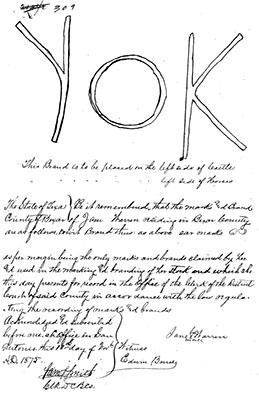 309
YOK
This Brand is to be placed on the left side of Cattle
left side of Horses
The State of Texas Be it remembered, that the marks & Brands
County of Bexar of Jane Warren residing in Bexar County
are as follows, to wit Brand this as above ear marks
as per margin being the only marks and brands claimed by her
& used in the marking & branding of her stock and which she
this day presents for record in the office of the Clerk of the District
Court of said County in accordance with the law regula-
ting the recording of marks & brands
Acknowledged & subscribed
before me at office in San Jane Warren
Antonio this day of Witness
A.D. 1875. Edwin
Sam Smith
Clk D.C.B.Co.